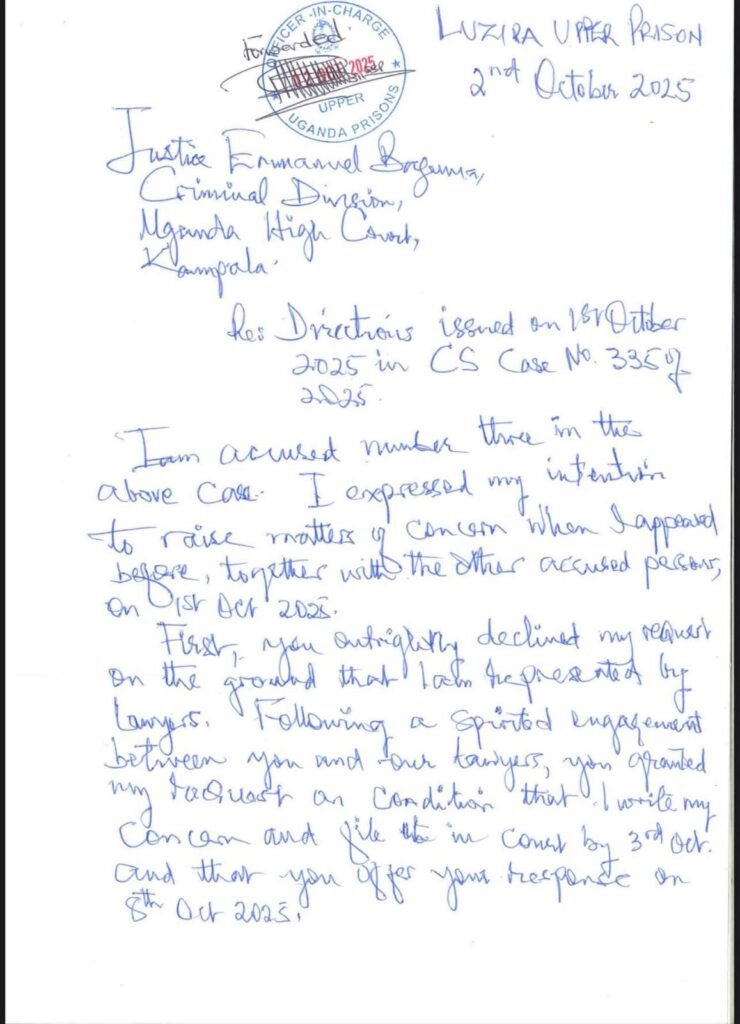 LUZIRA UPPER PRISON
2nd October 2025
OFFICER-IN-CHARGE
Forwarded
2025
UPPER
UGANDA PRISONS
Justice Emmanuel Baguma,
Criminal Division,
Uganda High Court,
Kampala.
Re: Directions issued on 1st October
2025 in CS Case No. 335 of
2025.
I am accused number three in the
above case. I expressed my intention
to raise matters of concern when I appeared
before, together with the other accused persons,
on 1st Oct 2025.
First, you outrightly declined my request
on the ground that I am represented by
lawyers. Following a spirited engagement
between you and our lawyers, you granted
my request on condition that I write my
concern and file in court by 3rd Oct.
and that you offer your response on
8th Oct 2025.